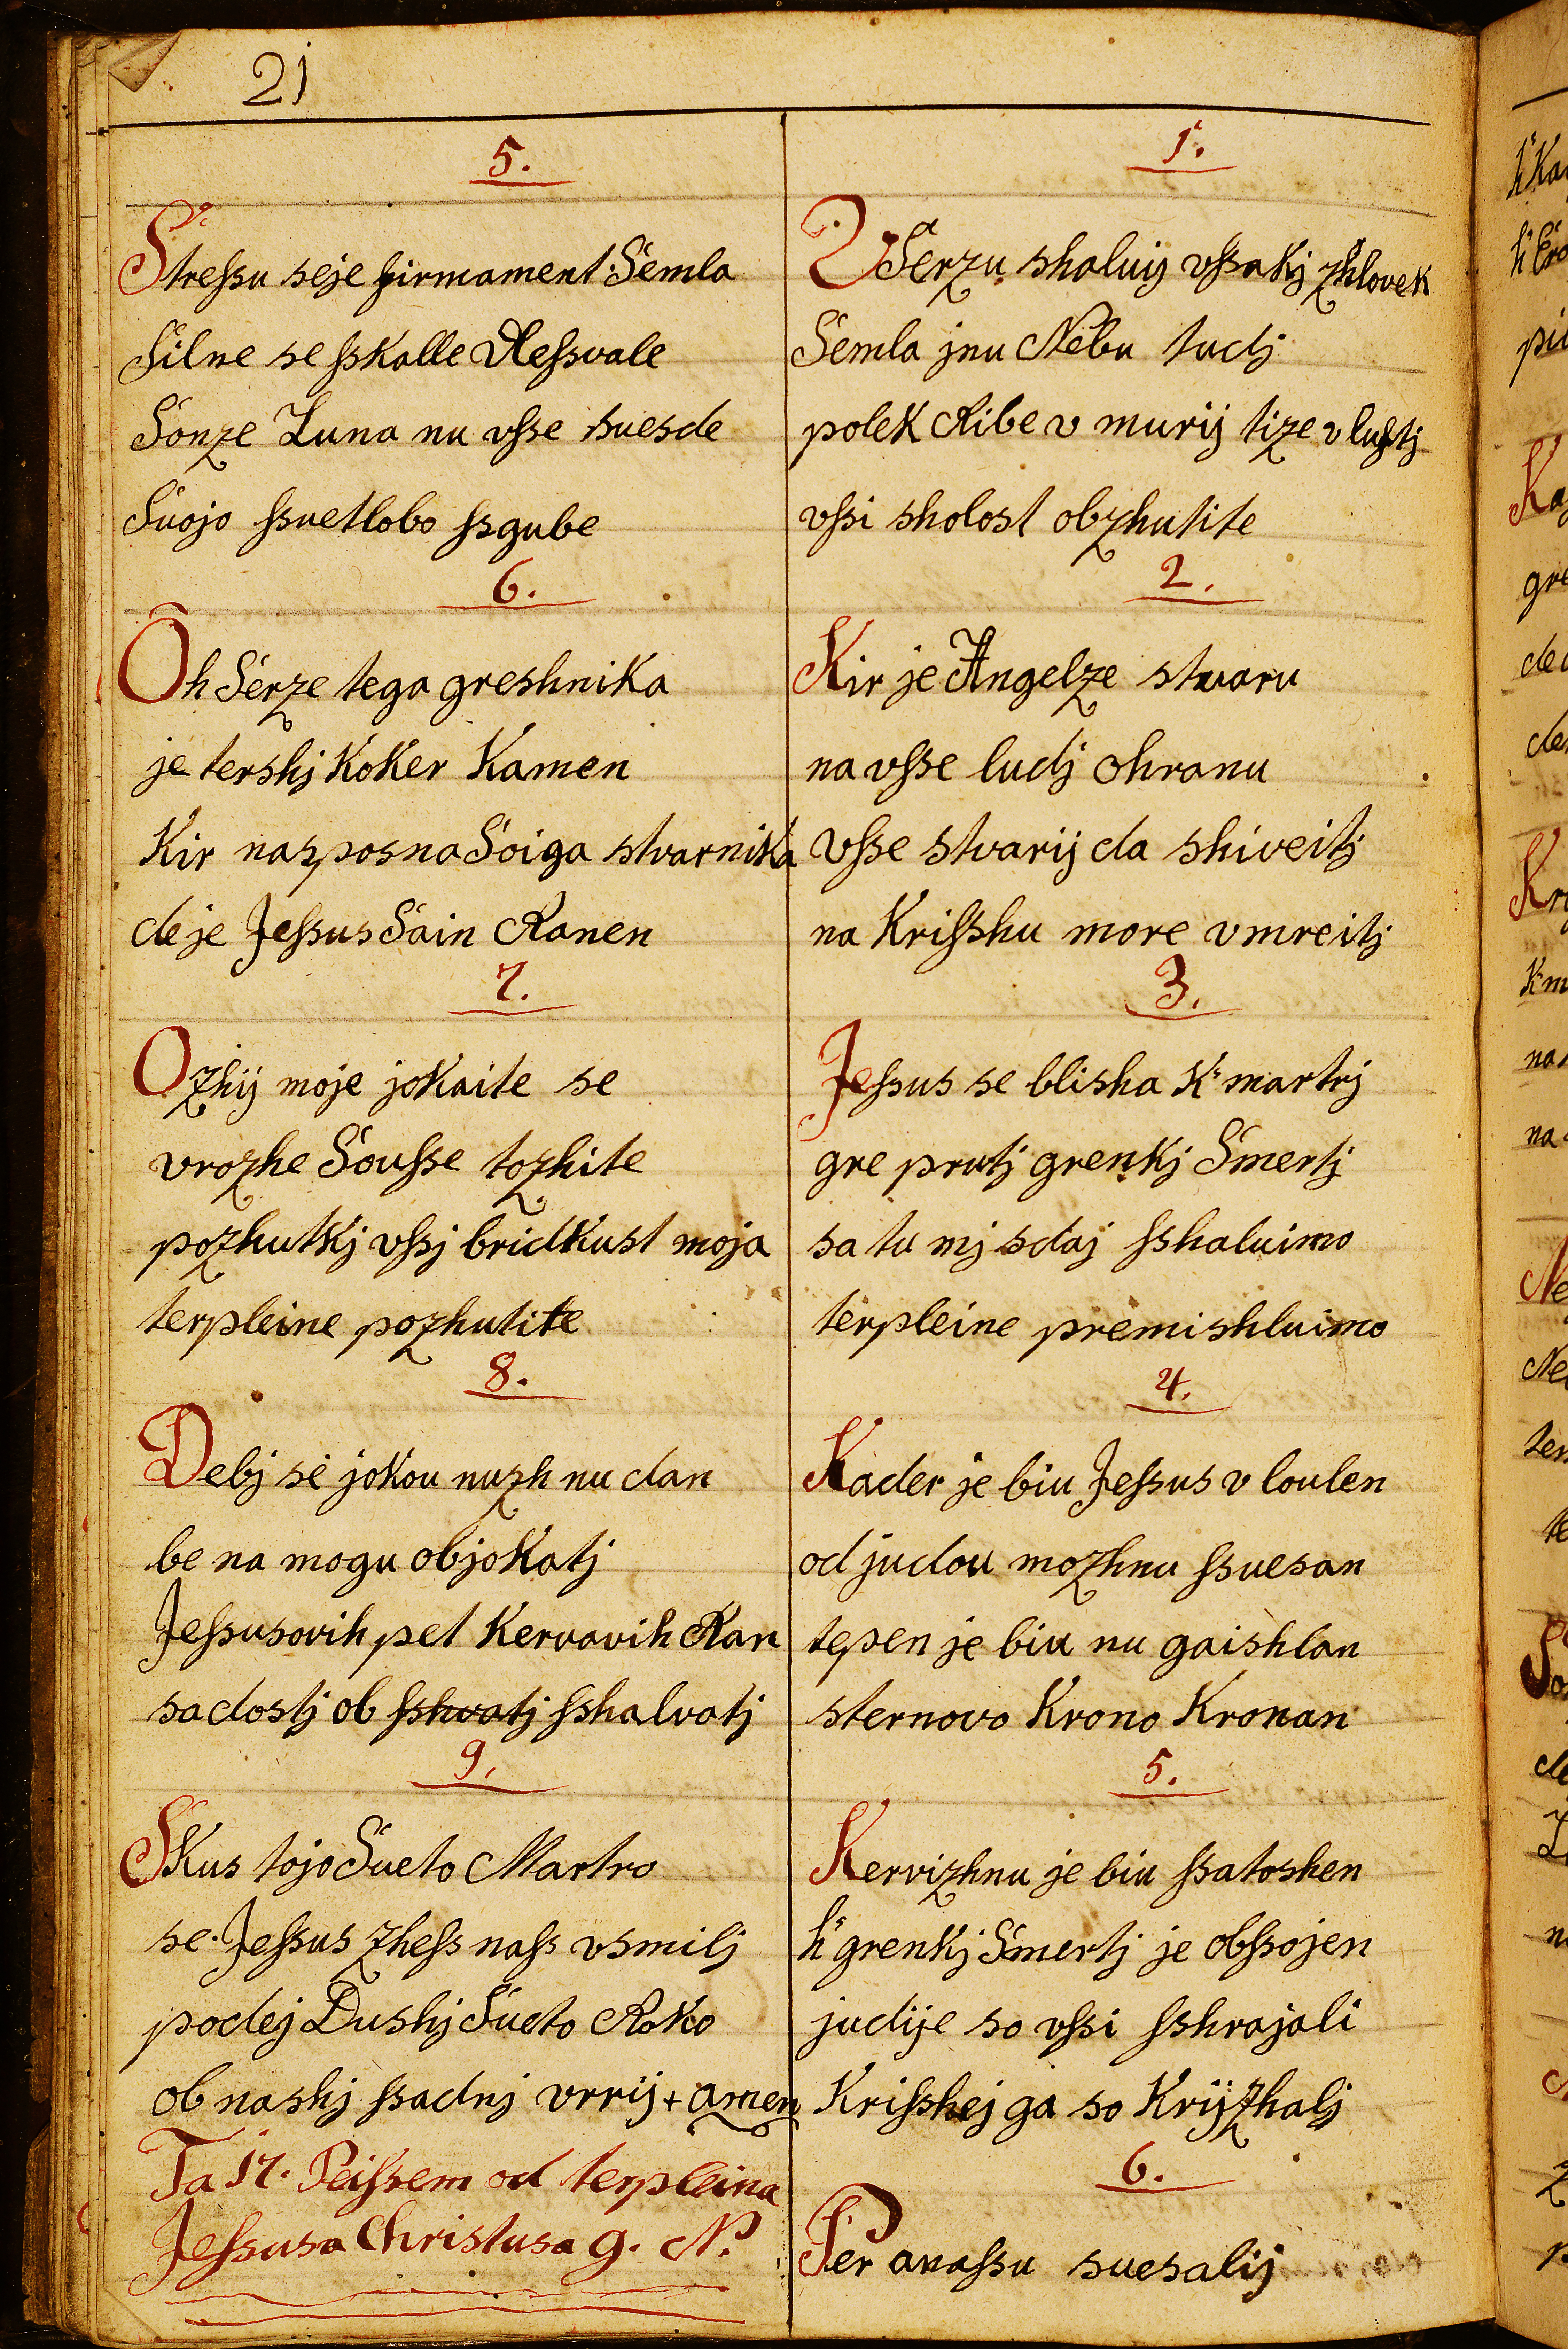 21
5.
Streſsu seje firmament Semla
Silne se ſskalle Resſvale
Sonze Luna nu vſse suesde
Suojo ſsuetlobo ſsgube
6.
Oh Serze tega greshnika
je tershj Koker Kamen
Kir nasposna Soiga stvarnika
deje Jeſsus Sain Ranen
7.
Ozhij moje jokaite se
vrozhe Souſse tozhite
pozhutkj vſsj bridkust moja
terpleine pozhutite
8.
Debj se jokou nuzh nu dan
be na mogu objokatj
Jeſsusovih pet Kervavih Ran
sadostj ob ſshvatj ſshalvatj
9.
Skus tojo Sueto Martro
se Jeſsus zheſs naſs vsmilj
podej Dushj Sueto Roko
ob nashj ſsadnj vrrij + amen
Ta 17. Peiſsem od terpleina
Jeſsusa Christusa g. N.
1.
V Serzu shaluij vſsakj zhlovek
Semla jnu Nebu tudj
polek Ribe v murij tize v luftj
vſsi sholost obzhutite
2.
Kir je Angelze stvaru
na vſse ludj ohranu
vſse stvarij da shiveitj
na Kriſshu more vmreitj
3.
Jeſsus se blisha K martrj
gre prutj grenkj Smertj
sa tu mj sdaj ſshaluimo
terpleine premishluimo
4.
Kader je biu Jeſsus v loulen
od judou mozhnu ſsuesan
tepen je biu nu gaishlan
sternovo Krono Kronan
5.
Kervizhnu je biu ſsatoshen
h grenkj Smertj je obſsojen
judije so vſsi ſshrajali
Kriſshej ga so Krijzhalj
6.
Per anaſsu suesalij